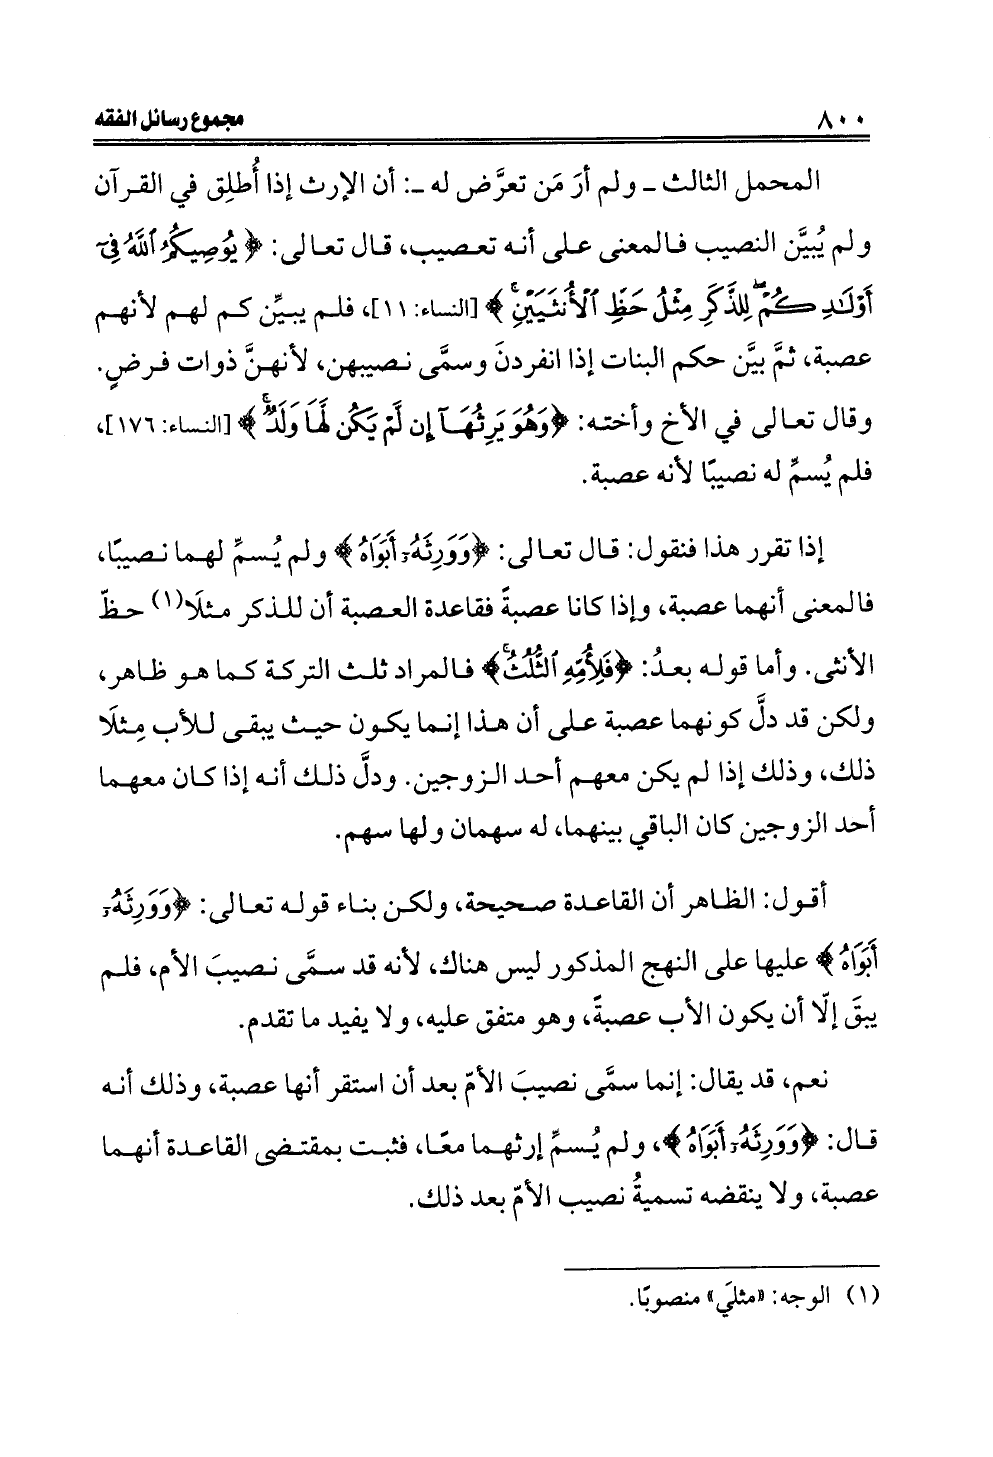 ٨٠٠ مجموع رسائل الفقه
المحمل الثالث ــ ولم أرَ مَن تعرَّض له ــ: أن الإرث إذا أُطلِق في القرآن
ولم يُبيَّن النصيب فالمعنى على أنه تعصيب، قال تعالى: ﴿يُوصِيكُمُ ٱللَّهُ فِىٓ
أَوْلَـٰدِكُمْ ۖ لِلذَّكَرِ مِثْلُ حَظِّ ٱلْأُنثَيَيْنِ ۚ﴾ [النساء: ١١]، فلم يبيِّن كم لهم لأنهم
عصبة، ثمَّ بيَّن حكم البنات إذا انفردنَ وسمَّى نصيبهن، لأنهنَّ ذوات فرضٍ.
وقال تعالى في الأخ وأخته: ﴿وَهُوَ يَرِثُهَآ إِن لَّمْ يَكُن لَّهَا وَلَدٌ ۚ﴾ [النساء: ١٧٦]،
فلم يُسمِّ له نصيبًا لأنه عصبة.
إذا تقرر هذا فنقول: قال تعالى: ﴿وَوَرِثَهُۥٓ أَبَوَاهُ﴾ ولم يُسمِّ لهما نصيبًا،
فالمعنى أنهما عصبة، وإذا كانا عصبةً فقاعدة العصبة أن للذكر مثلَا(١) حظّ
الأنثى. وأما قوله بعدُ: ﴿فَلِأُمِّهِ ٱلثُّلُثُ ۚ﴾ فالمراد ثلث التركة كما هو ظاهر،
ولكن قد دلَّ كونهما عصبة على أن هذا إنما يكون حيث يبقى للأب مِثلَا
ذلك، وذلك إذا لم يكن معهم أحد الزوجين. ودلَّ ذلك أنه إذا كان معهما
أحد الزوجين كان الباقي بينهما، له سهمان ولها سهم.
أقول: الظاهر أن القاعدة صحيحة، ولكن بناء قوله تعالى: ﴿وَوَرِثَهُۥٓ
أَبَوَاهُ﴾ عليها على النهج المذكور ليس هناك، لأنه قد سمَّى نصيبَ الأم، فلم
يبقَ إلّا أن يكون الأب عصبةً، وهو متفق عليه، ولا يفيد ما تقدم.
نعم، قد يقال: إنما سمَّى نصيبَ الأمّ بعد أن استقر أنها عصبة، وذلك أنه
قال: ﴿وَوَرِثَهُۥٓ أَبَوَاهُ﴾، ولم يُسمِّ إرثهما معًا، فثبت بمقتضى القاعدة أنهما
عصبة، ولا ينقضه تسميةُ نصيب الأمّ بعد ذلك.
(١) الوجه: «مثلَي» منصوبًا.